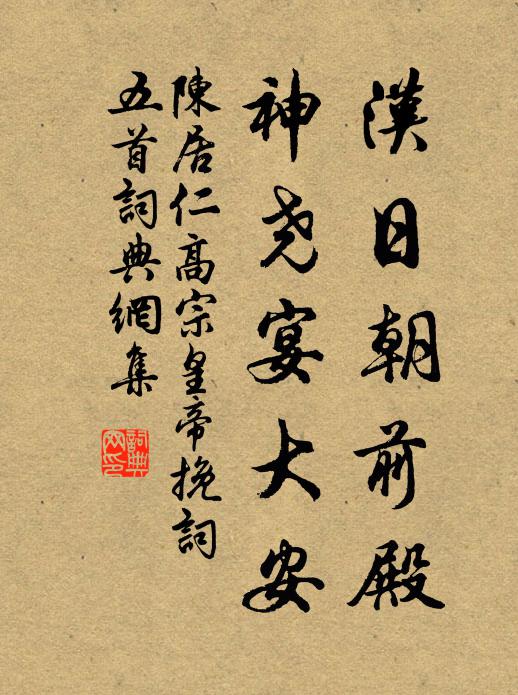 漢日朝前殿
神尧宴大安
陳居仁高宗皇帝挽詞
五首詞典網集
詞典
网印